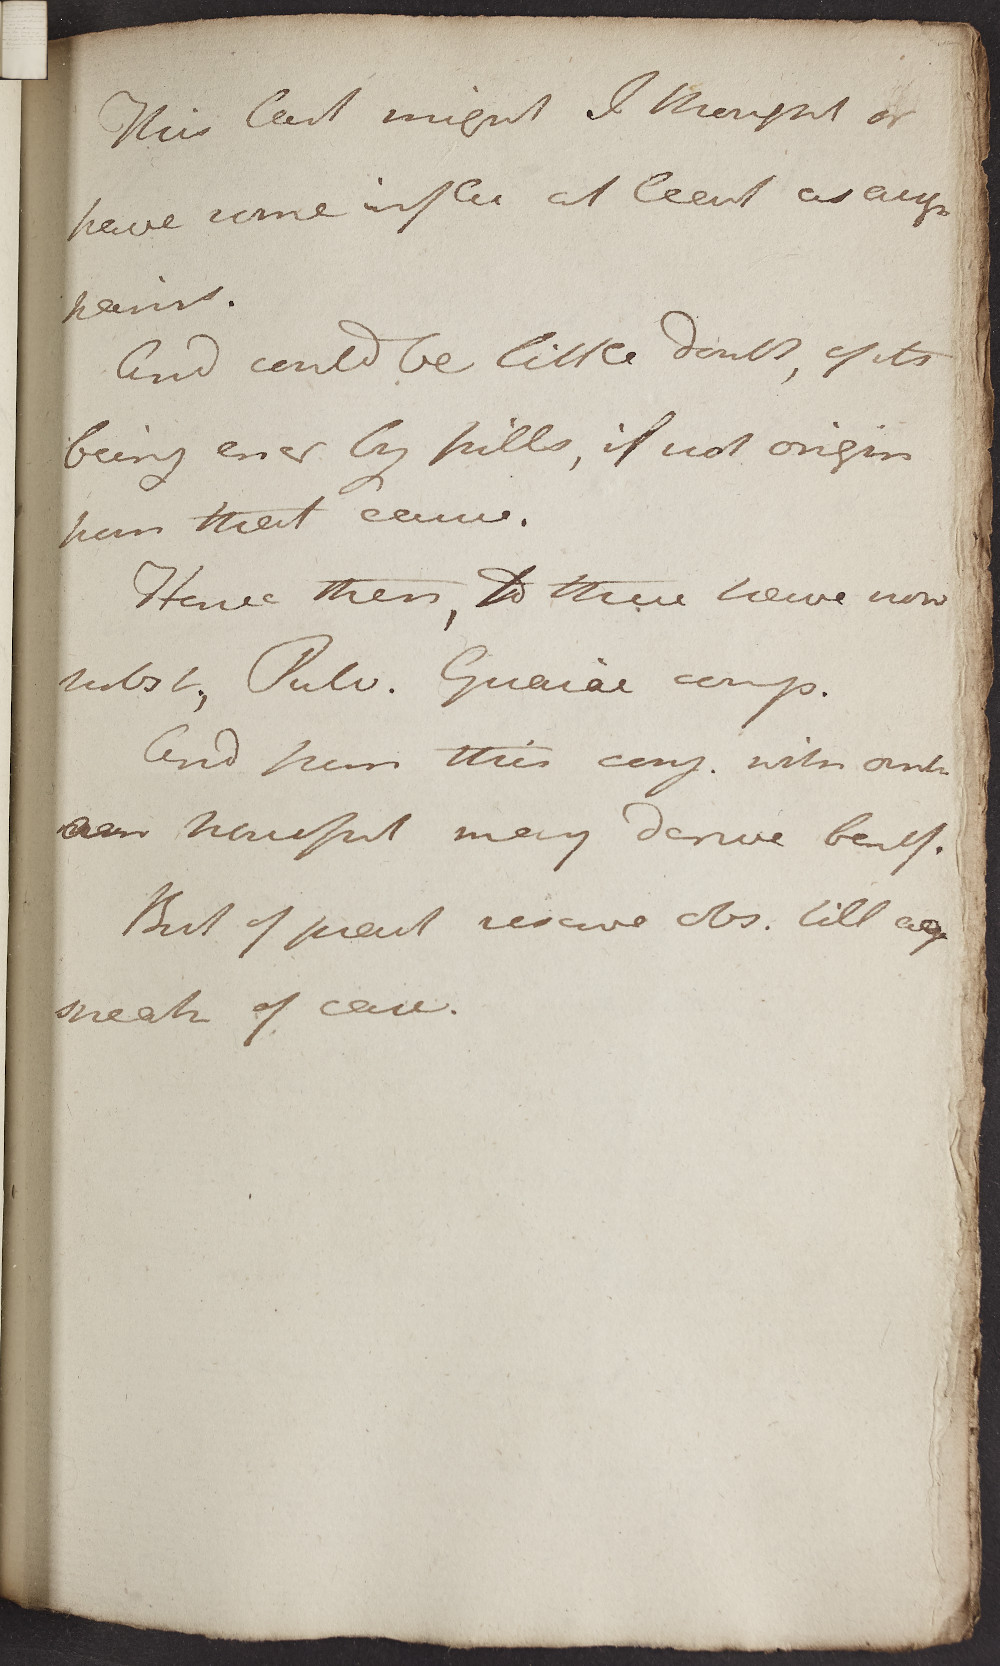 This last might I thought or
have some influ at least as augn
pains.
And could be little doubt, of its
being ener by pills, if not origin
from that cause.
Hence then, to these have now
subst., Pulv. Guaiac comp.
And from this conj. with
may derive benef.
But of present reserve obs. till again
speak of case.